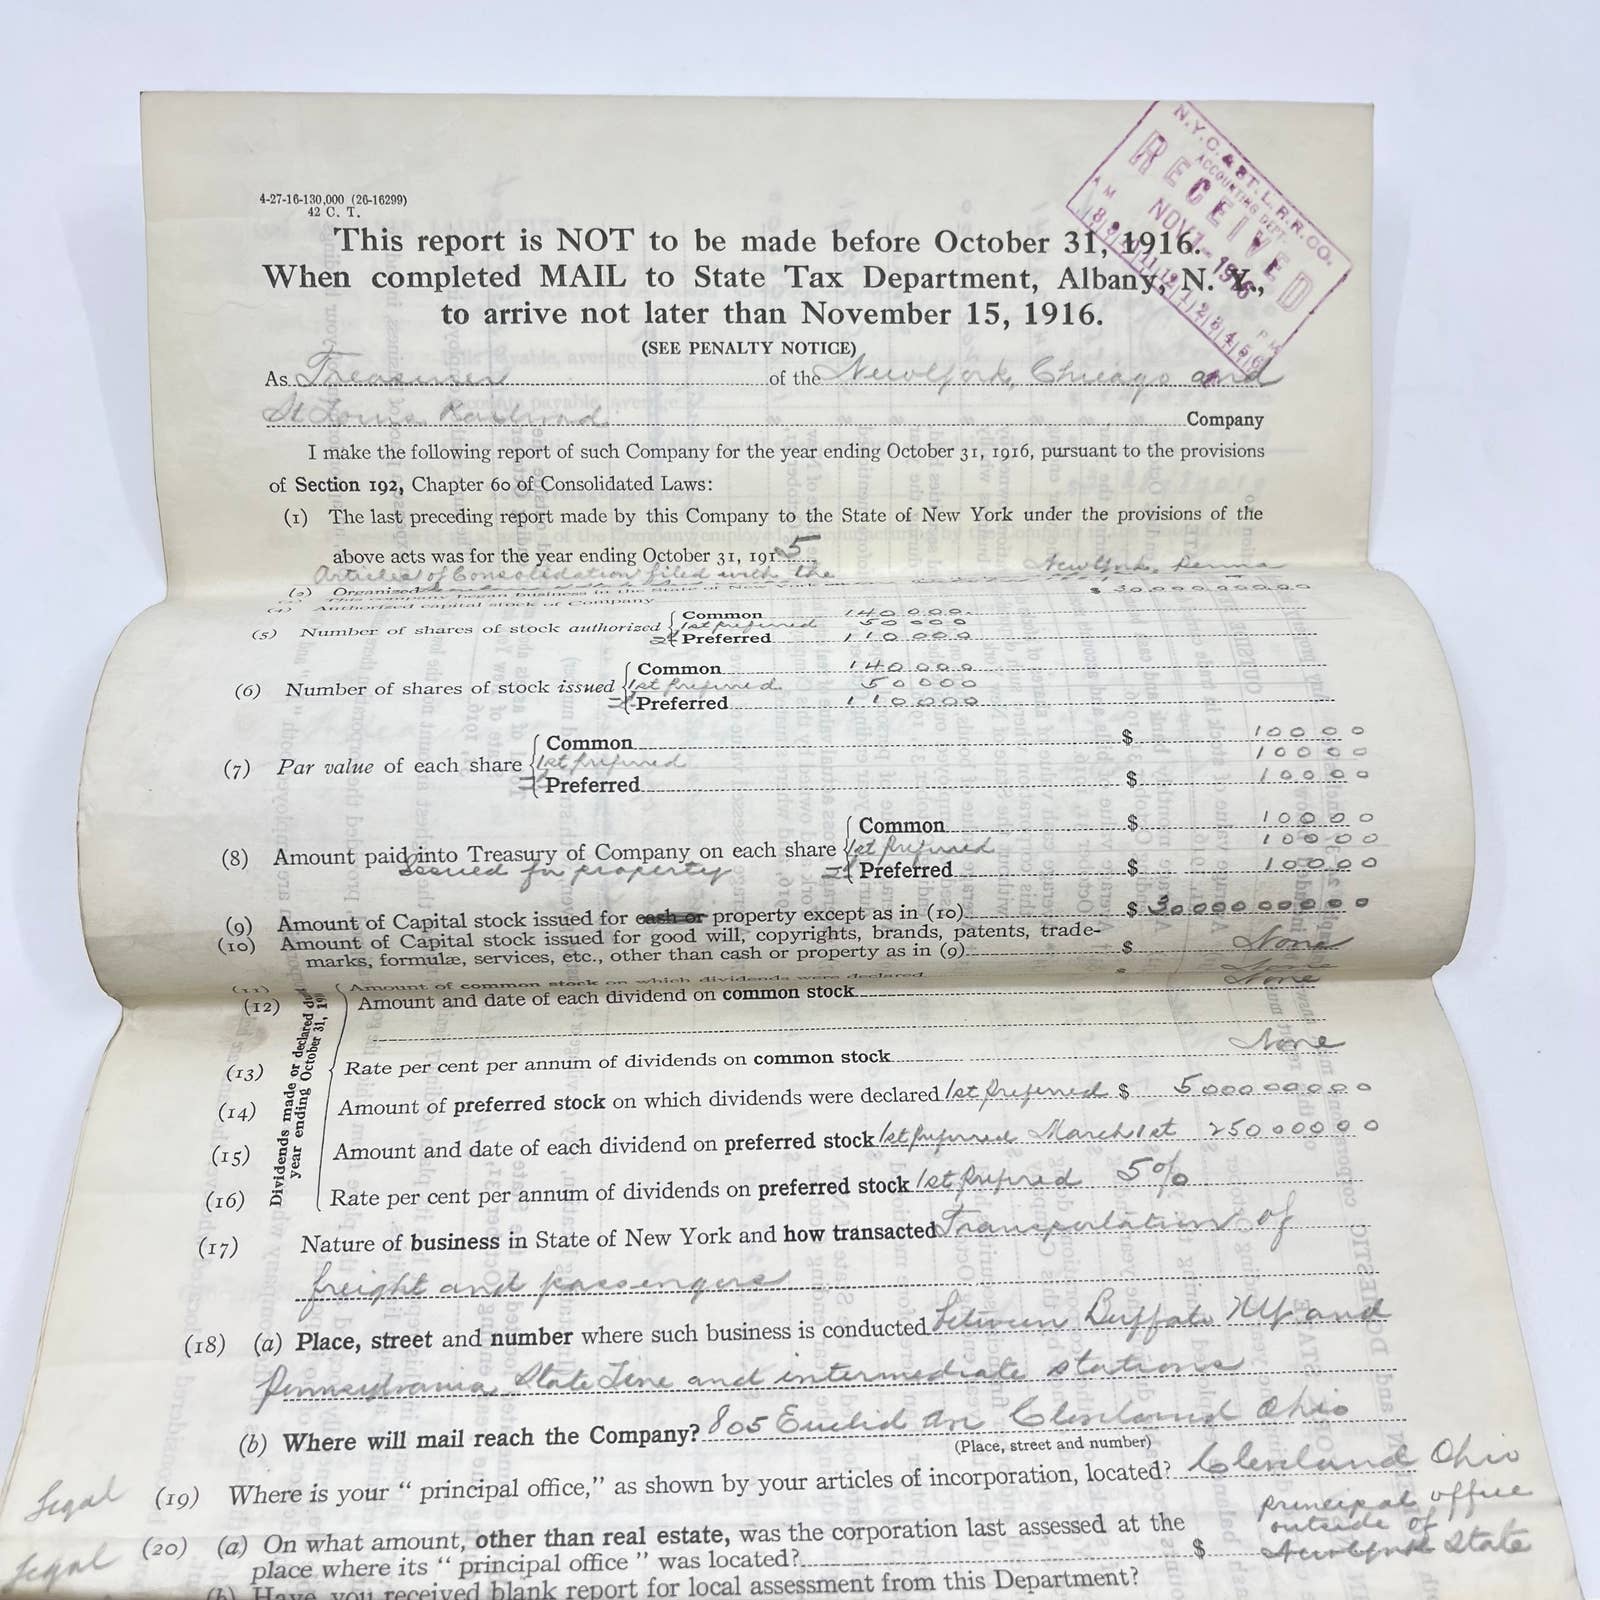 N.Y.C. & ST. L. R.R. CO.
ACCOUNTING DEPT.
RECEIVED
NOV 1 - 1916
A M
P M
8 9 10 11 12 1 2 3 4 5 6
4-27-16-130,000 (26-16299)
42 C. T.
This report is NOT to be made before October 31, 1916.
When completed MAIL to State Tax Department, Albany, N. Y.,
to arrive not later than November 15, 1916.
(SEE PENALTY NOTICE)
As Treasurer of the New York, Chicago and
St Louis Railroad Company
I make the following report of such Company for the year ending October 31, 1916, pursuant to the provisions
of Section 192, Chapter 60 of Consolidated Laws:
(1) The last preceding report made by this Company to the State of New York under the provisions of the
above acts was for the year ending October 31, 1915
Articles of Consolidation filed with the New York, Penna
(2) Organized
(4) Authorized capital stock of Company $ 30 000 000 00
(5) Number of shares of stock authorized Common 140 000
1st preferred 50 000
2d Preferred 110 000
(6) Number of shares of stock issued Common 140 000
1st preferred 50 000
2d Preferred 110 000
(7) Par value of each share Common $ 100 00
1st preferred 100 00
2d Preferred $ 100 00
(8) Amount paid into Treasury of Company on each share Common $ 100 00
1st preferred 100 00
2d Preferred $ 100 00
Issued for property
(9) Amount of Capital stock issued for cash or property except as in (10) $ 30 000 000 00
(10) Amount of Capital stock issued for good will, copyrights, brands, patents, trade-
marks, formulæ, services, etc., other than cash or property as in (9) $ None
(11) Amount of common stock on which dividends were declared $ None
Dividends made or declared
year ending October 31, 19
(12) Amount and date of each dividend on common stock None
(13) Rate per cent per annum of dividends on common stock None
(14) Amount of preferred stock on which dividends were declared 1st preferred $ 5 000 000 00
(15) Amount and date of each dividend on preferred stock 1st preferred March 1st 250 000 00
(16) Rate per cent per annum of dividends on preferred stock 1st preferred 5%
(17) Nature of business in State of New York and how transacted Transportation of
freight and passengers
(18) (a) Place, street and number where such business is conducted between Buffalo NY and
Pennsylvania State Line and intermediate stations
(b) Where will mail reach the Company? 805 Euclid Av Cleveland Ohio
(Place, street and number)
Legal (19) Where is your "principal office," as shown by your articles of incorporation, located? Cleveland Ohio
Legal (20) (a) On what amount, other than real estate, was the corporation last assessed at the
place where its "principal office" was located? $
principal office
outside of
New York State
(b) Have you received blank report for local assessment from this Department?